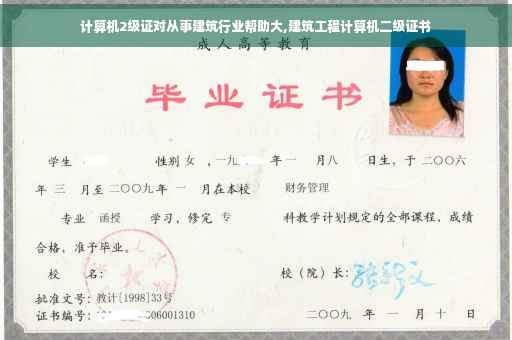 计算机2级证对从事建筑行业帮助大,建筑工程计算机二级证书
成人高等教育
毕业证书
学生 性别 女 ,一九 年 一 月八 日生,于 二〇〇六
年 三 月至 二〇〇九年 一 月在本校 财务管理
专业 函授 学习,修完 专 科教学计划规定的全部课程,成绩
合格,准予毕业。
校 名: 校(院)长:
批准文号:教计[1998]33号
证书编号: 06001310 二〇〇九 年 一 月 十 日